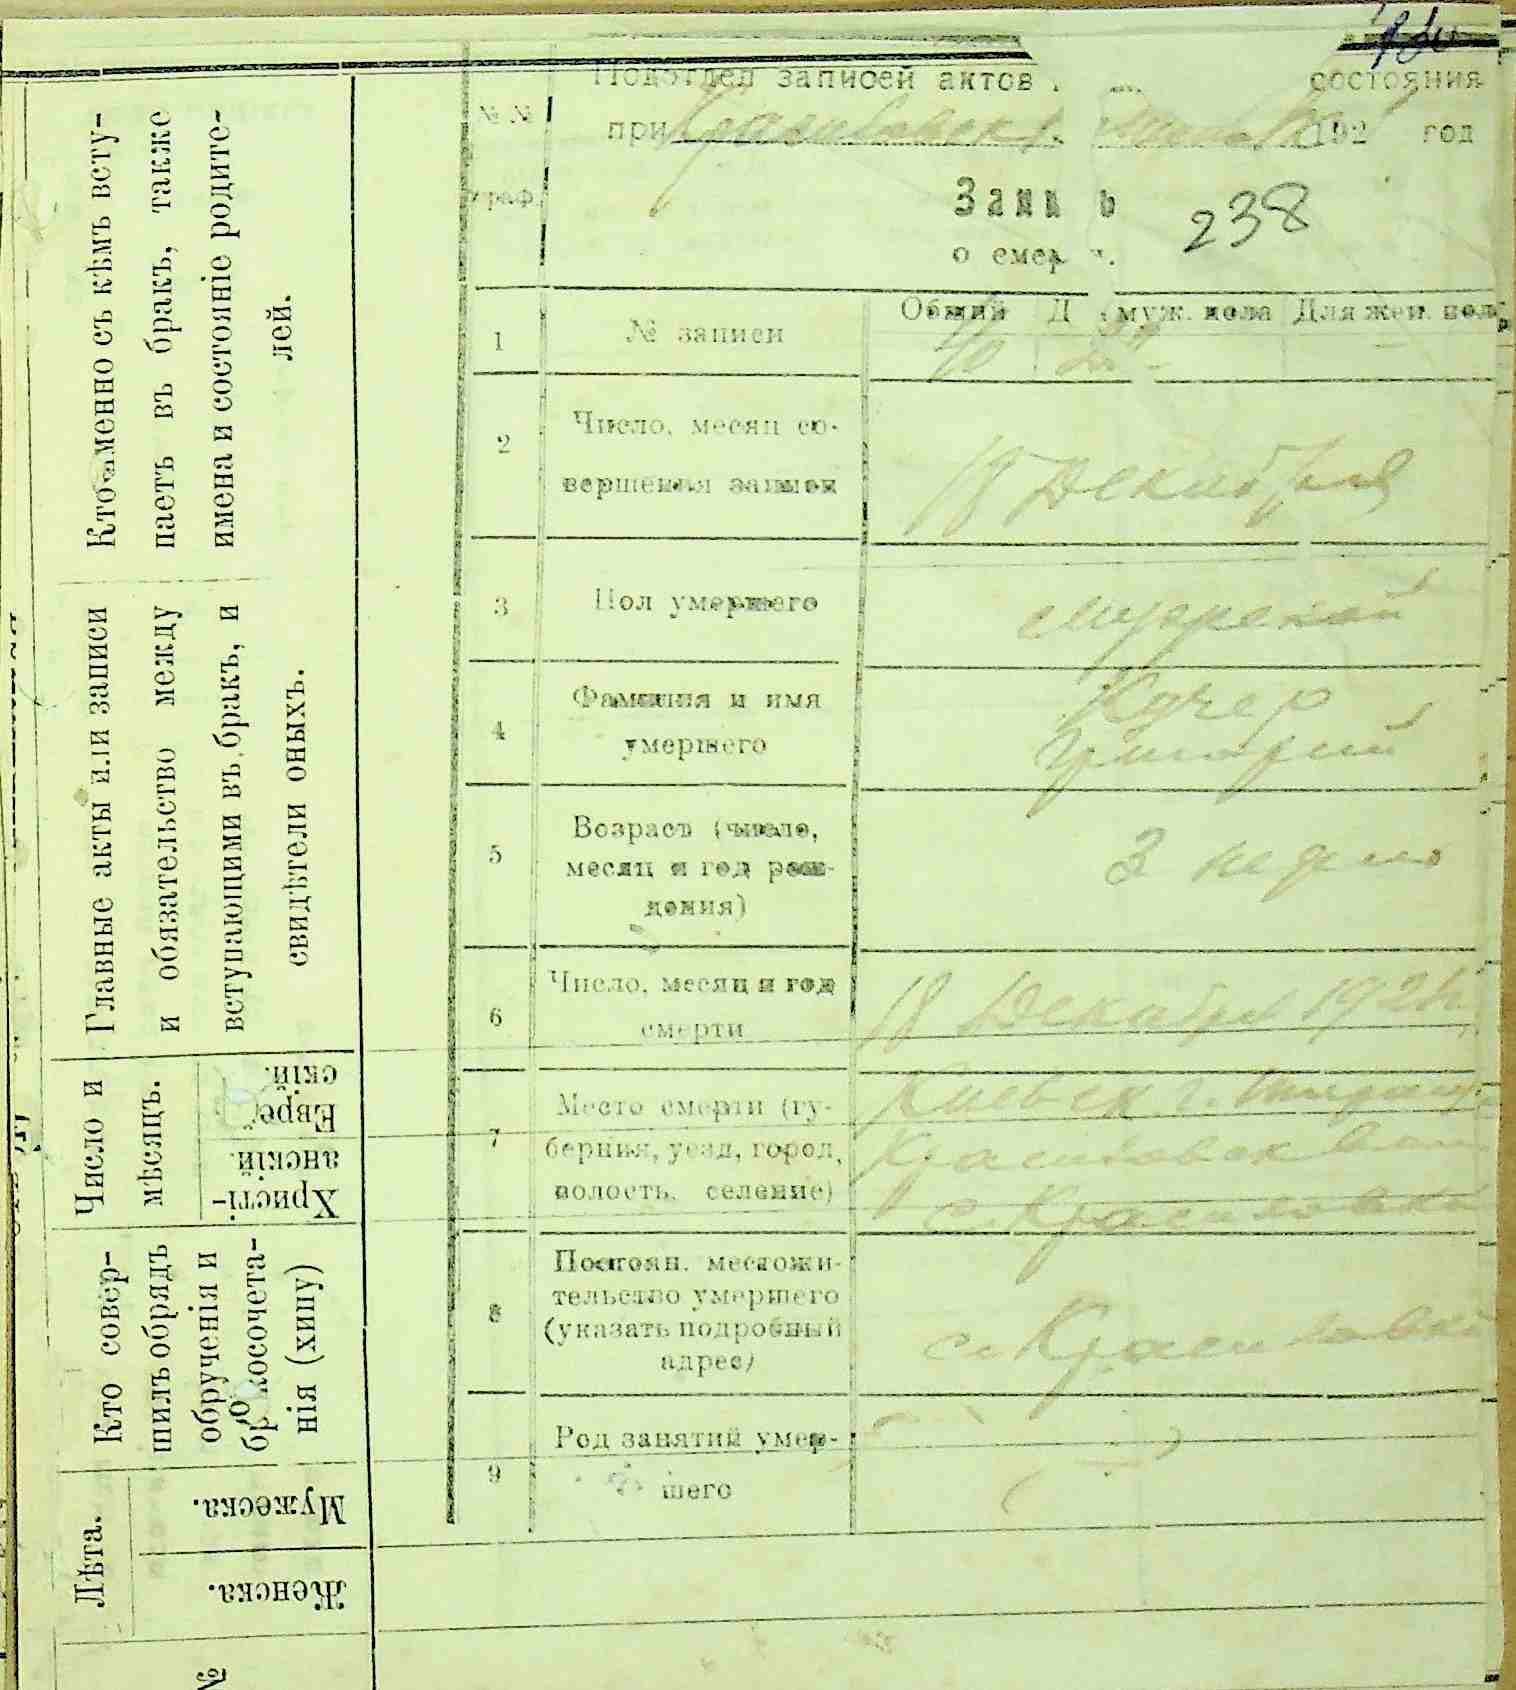 Кто именно съ кѣмъ всту-
паетъ въ бракъ, также
имена и состояніе родите-
лей.
Главные акты или записи
и обязательство между
вступающими въ бракъ, и
свидѣтели оныхъ.
Число и
мѣсяцъ.
Еврей-
скій.
Христі-
анскій.
Кто совер-
шилъ обрядъ
обрученія и
бракосочета-
нія (хипу)
Лѣта.
Мужеска.
Женска.
№
Подотдел записей актов состояния
при 192 год
№ №
граф.
Запись
238
о смерти.
Общий Для муж. пола Для жен. пола
1 № записи
2 Число, месяц со-
вершения записи
18 Декабря
3 Пол умершего мужской
4 Фамилия и имя
умершего
Кучер
Григорий
5 Возраст (число,
месяц и год рож-
дения)
3 недели
6 Число, месяц и год
смерти
18 Декабря 192
7 Место смерти (гу-
берния, уезд, город,
волость, селение)
Киевск г.
с. Красиловка
8 Постоян. местожи-
тельство умершего
(указать подробный
адрес)
с. Красиловка
9 Род занятий умер-
шего